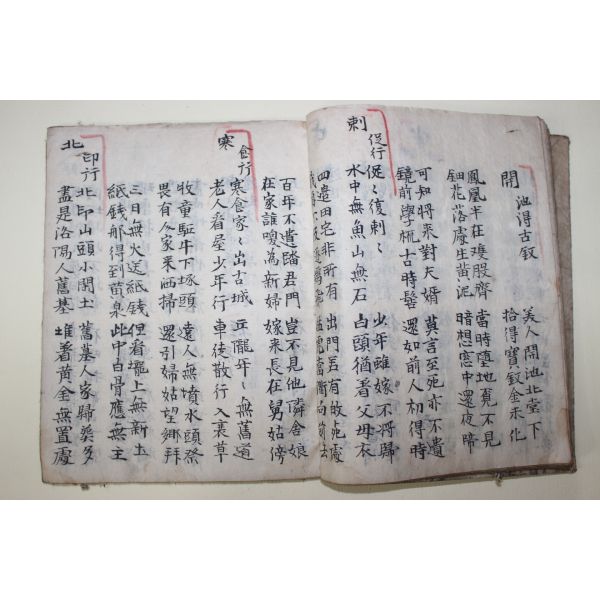 開池得古釵
美人開池北堂下
拾得寶釵金未化
鳳凰半在雙股齊
鈿花落處生黃泥
當時墮地覓不見
暗想窓中還夜啼
可知將來對夫婿
鏡前學梳古時髻
莫言至死亦不遺
還如前人初得時
刺促行
促〻復刺〻
水中無魚山無石
少年雖嫁不將歸
白頭猶着父母衣
四邊田宅非所有
出門若有歸死處
猛虎當衢向前去
百年不遣踏君門
在家誰喚為新婦
豈不見他隣舍娘
嫁来長在舅姑傍
寒食行
寒食家〻出古城
老人看屋少年行
丘隴年〻無舊道
車徒散行入衰草
牧童駈牛下塚頭
畏有人家来洒掃
遠人無墳水頭祭
還引婦姑望鄉拜
三日無火送紙錢
紙錢那得到黃泉
但看壠上無新土
此中白骨應無主
北邙行
北邙山頭小閑土
盡是洛陽人舊墓
舊墓人家歸葬多
堆着黃金無置處